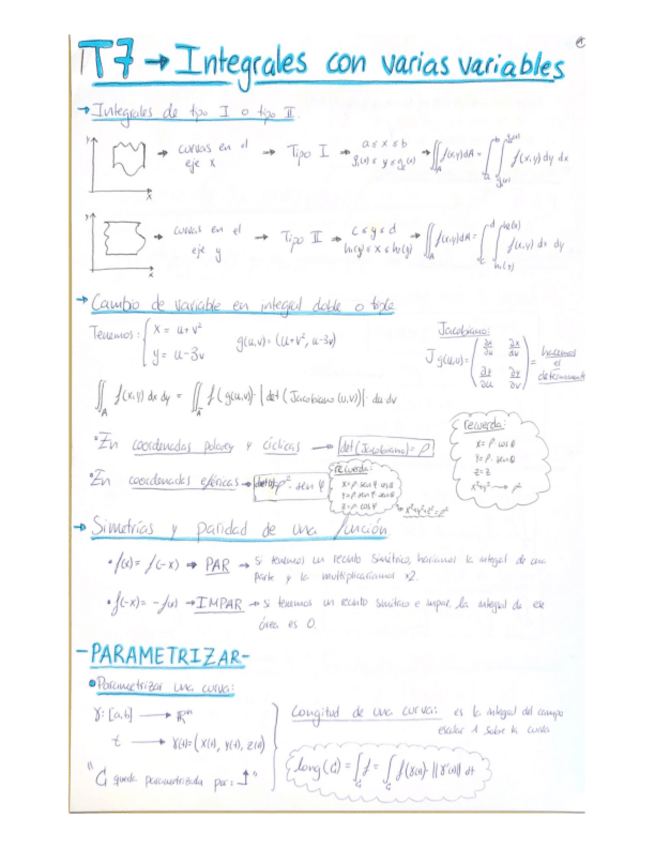 T7 → Integrales con varias variables
→ Integrales de tipo I o tipo II.
y
x
→ curvas en el eje x → Tipo I → a ≤ x ≤ b
g₁(x) ≤ y ≤ g₂(x) → ∬_A f(x,y)dA = ∫_a^b ∫_{g₁(x)}^{g₂(x)} f(x,y) dy dx
y
x
→ curvas en el eje y → Tipo II → c ≤ y ≤ d
h₁(y) ≤ x ≤ h₂(y) → ∬_A f(x,y)dA = ∫_c^d ∫_{h₁(y)}^{h₂(y)} f(x,y) dx dy
→ Cambio de variable en integral doble o triple
Tenemos: { x = u+v²
y = u-3v
g(u,v) = (u+v², u-3v)
Jacobiano:
J g(u,v) = ( ∂x/∂u ∂x/∂v
∂y/∂u ∂y/∂v ) = hacemos el determinante
∬_A f(x,y) dx dy = ∬_A f(g(u,v)) · |det(Jacobiano(u,v))| · du dv
• En coordenadas polares y → det(Jacobiano) = ρ
recuerda:
x = ρ cos θ
y = ρ · sen θ
z = z
x²+y² → ρ²
• En coordenadas esféricas → ρ² · sen φ
recuerda:
x = ρ sen φ cos θ
y = ρ sen φ · sen θ
z = ρ cos φ
x²+y²+z² = ρ²
→ Simetrías y paridad de una función
• f(x) = f(-x) → PAR → Si tenemos un recinto simétrico, haríamos la integral de una
parte y la multiplicaríamos x2.
• f(-x) = -f(x) → IMPAR → si tenemos un recinto simétrico e impar, la integral de ese
área es 0.
-PARAMETRIZAR-
• Parametrizar una curva:
γ: [a,b] → ℝⁿ
t → γ(t) = (x(t), y(t), z(t))
"C queda parametrizada por: ↑"
Longitud de una curva: es la integral del campo
escalar 1 sobre la curva
long(C) = ∫_C f = ∫_C f(γ(t)) · ||γ'(t)|| dt